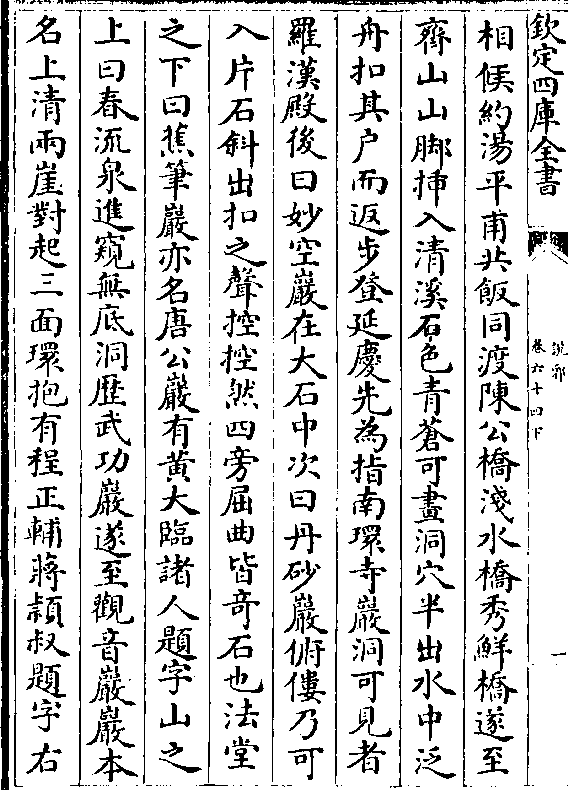 欽定四庫全書
說郛
卷六十四下
一
相候約湯平甫共飯同渡陳公橋淺水橋秀鮮橋遂至
齊山山脚插入清溪石色青蒼可畫洞穴半出水中泛
舟扣其户而返步登延慶先為指南環寺巖洞可見者
羅漢殿後曰妙空巖在大石中次曰丹砂巖俯僂乃可
入片石斜出扣之聲控控然四旁屈曲皆竒石也法堂
之下曰蕉筆巖亦名唐公巖有黄大臨諸人題字山之
上曰春流泉進窺無底洞歴武功巖遂至觀音巖巖本
名上清兩崖對起三面環抱有程正輔蔣頴叔題字右